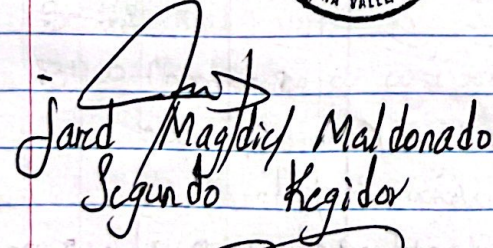 VALLE
Jared Magdiel Maldonado
Segundo Regidor